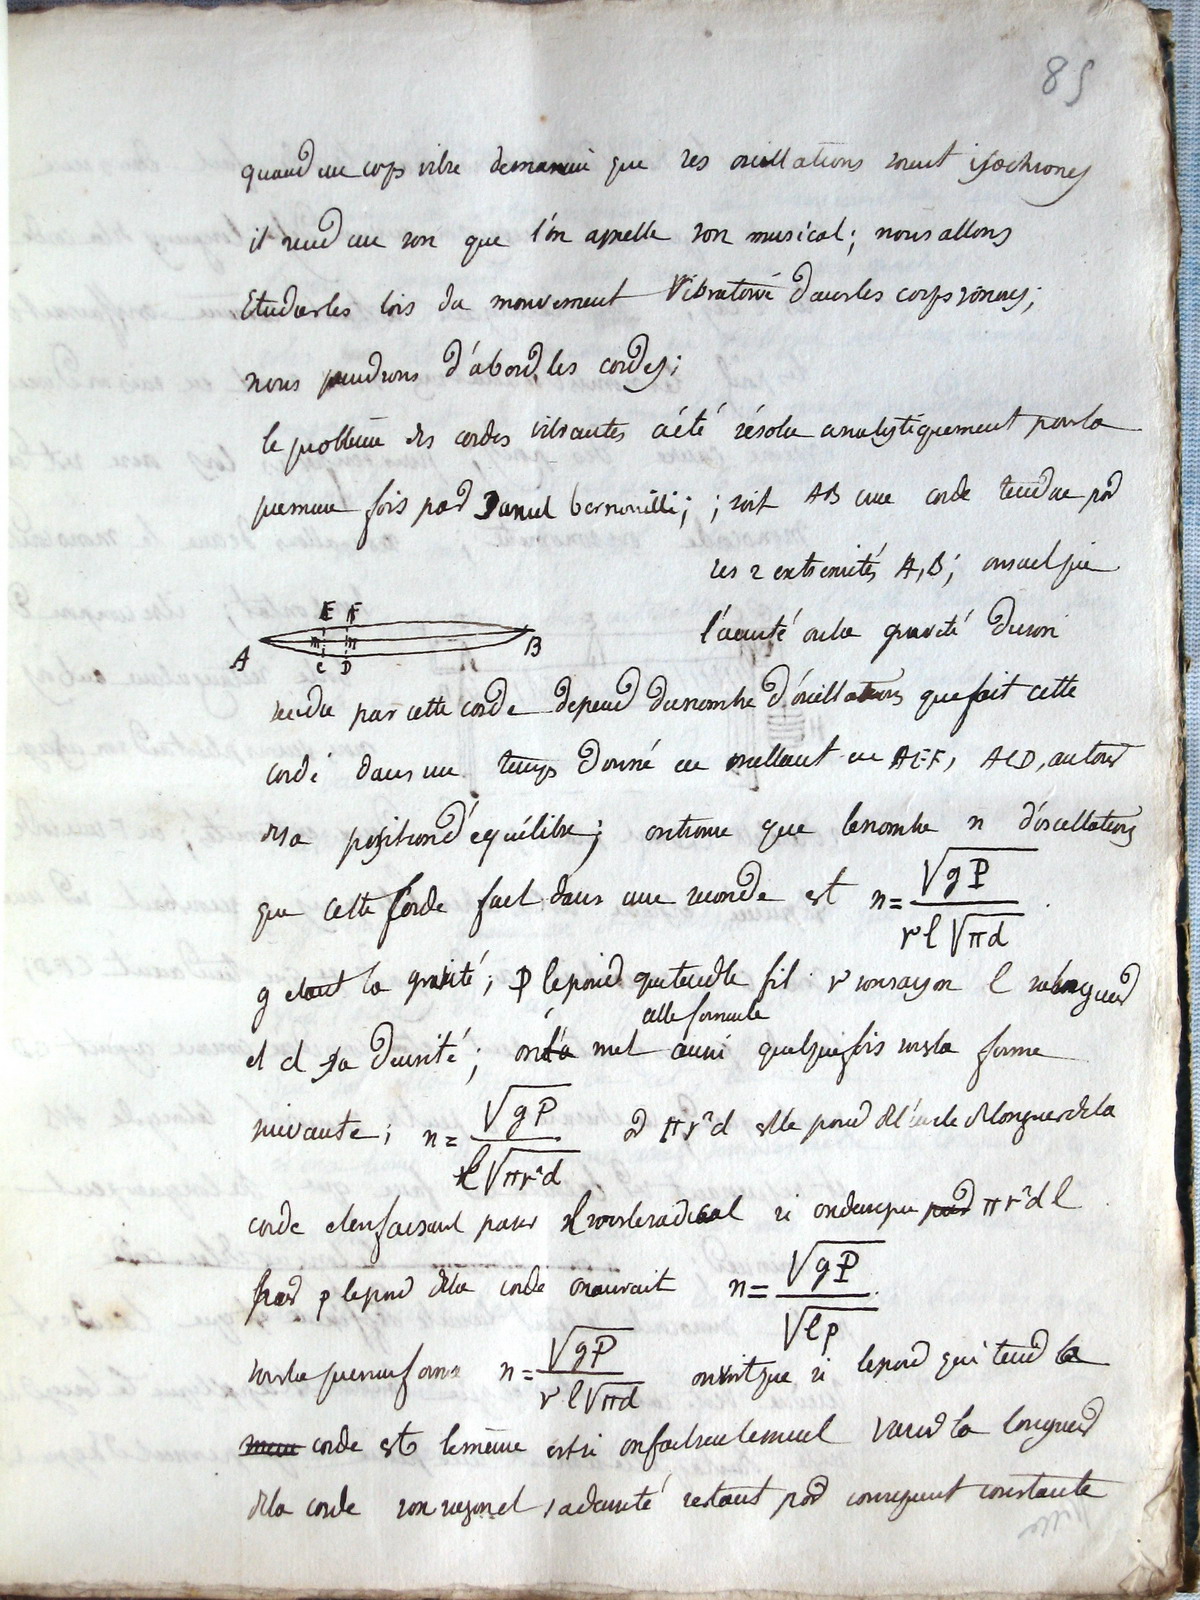 85
quand un corps vibre de manière que ses oscillations soient isochrones
il rend un son que l'on appelle son musical; nous allons
Etudier les lois du mouvement Vibratoire dans les corps sonores;
nous prendrons d'abord, les cordes;
le problème des cordes vibrantes a été résolu analytiquement pour la
première fois par Daniel bernouilli; ; soit AB une corde tendue par
ses 2 extremités A, B; on sait que
l'acuité ou la gravité du son
E F
A m n B
C D
rendu par cette corde depend du nombre d'oscillations que fait cette
corde dans un temps donné en oscillant en AEF, ACD, autour
de sa position d'equilibre; on trouve que le nombre n d'oscillations
que cette corde fait dans une seconde est n = √gP / rl√πd .
g etant la gravité; P le poid qui tend le fil r son rayon l sa longueur
et d sa densité; on la met aussi cette formule quelquefois sous la forme
suivante; n = √gP / l√πr²d or πr²d est le poid de l'unité de longueur de la
corde et en faisant passer l sous le radical si on designe par πr²dl
par p le poid de la corde on aurait n = √gP / √lp
sous la premiere forme n = √gP / rl√πd on voit que si le poid qui tend la
corde est le même et si on fait seulement varier la longueur
de la corde son rayon et sa densité restant par consequent constante